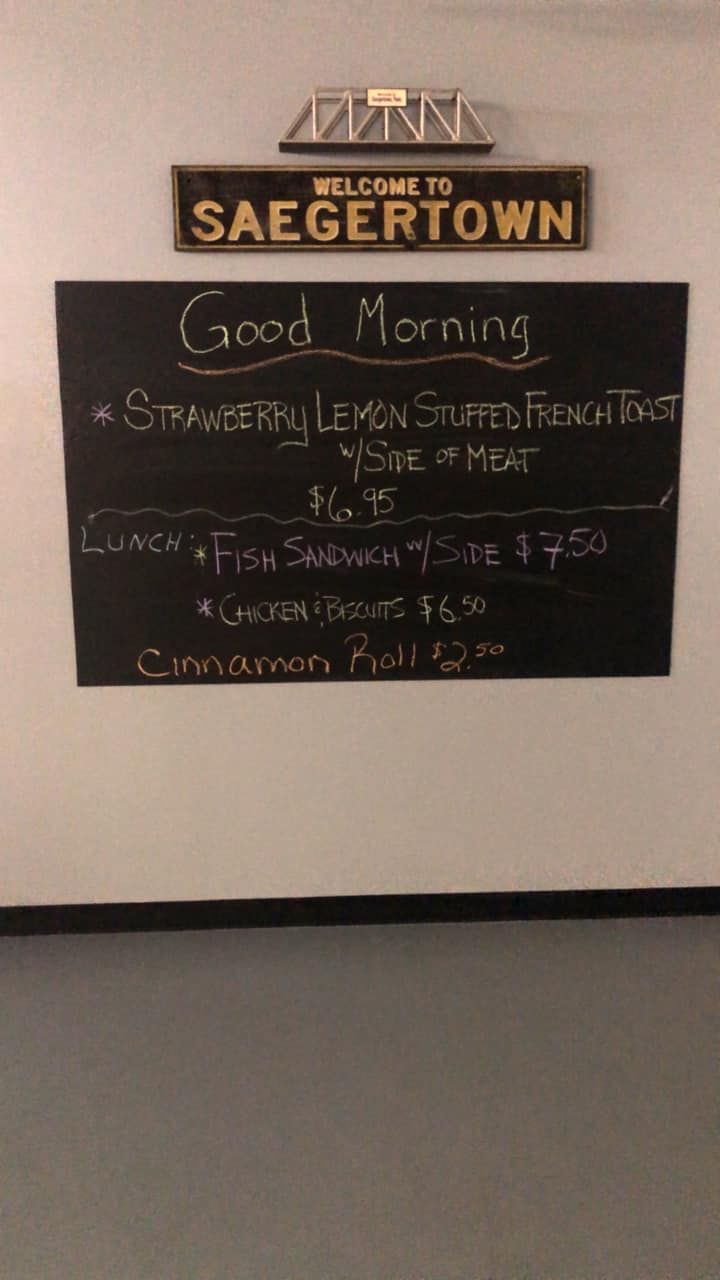 WELCOME TO
SAEGERTOWN
Good Morning
* STRAWBERRY LEMON STUFFED FRENCH TOAST
W/SIDE OF MEAT
$6.95
LUNCH: * FISH SANDWICH W/ SIDE $7.50
* CHICKEN & BISCUITS $6.50
Cinnamon Roll $2.50